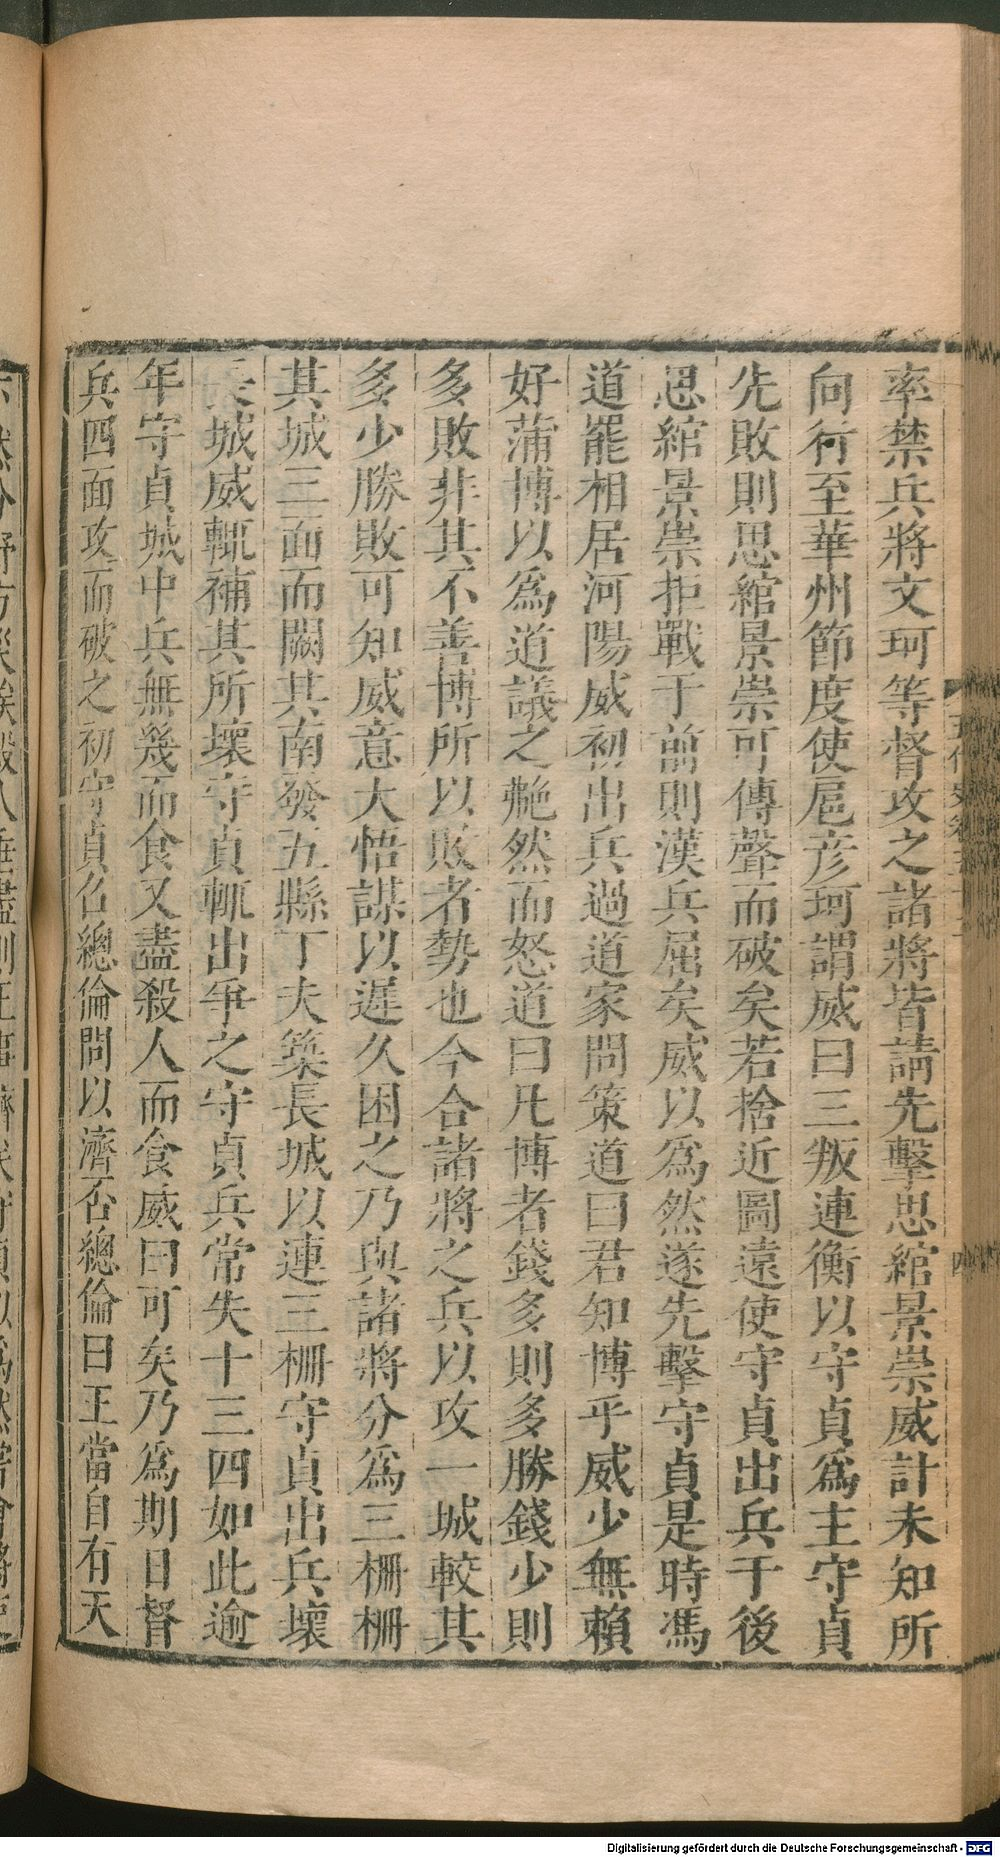 率禁兵將文珂等督攻之諸將皆請先擊思綰景崇威計未知所
向行至華州節度使扈彦珂謂威曰三叛連衡以守貞爲主守貞
先敗則思綰景崇可傳聲而破矣若捨近圖遠使守貞出兵于後
思綰景崇拒戰于前則漢兵屈矣威以爲然遂先擊守貞是時馮
道罷相居河陽威初出兵過道家問策道曰君知博乎威少無賴
好蒲博以爲道議之艴然而怒道曰凡博者錢多則多勝錢少則
多敗非其不善博所以敗者勢也今合諸將之兵以攻一城較其
多少勝敗可知威意大悟謀以遲久困之乃與諸將分爲三柵柵
其城三面而闕其南發五縣丁夫築長城以連三柵守貞出兵壞
長城威輒補其所壞守貞輒出爭之守貞兵常失十三四如此逾
年守貞城中兵無幾而食又盡殺人而食威曰可矣乃爲期日督
兵四面攻而破之初守貞召總倫問以濟否總倫曰王當自有天
五代史卷五十二
四
Digitalisierung gefördert durch die Deutsche Forschungsgemeinschaft - DFG